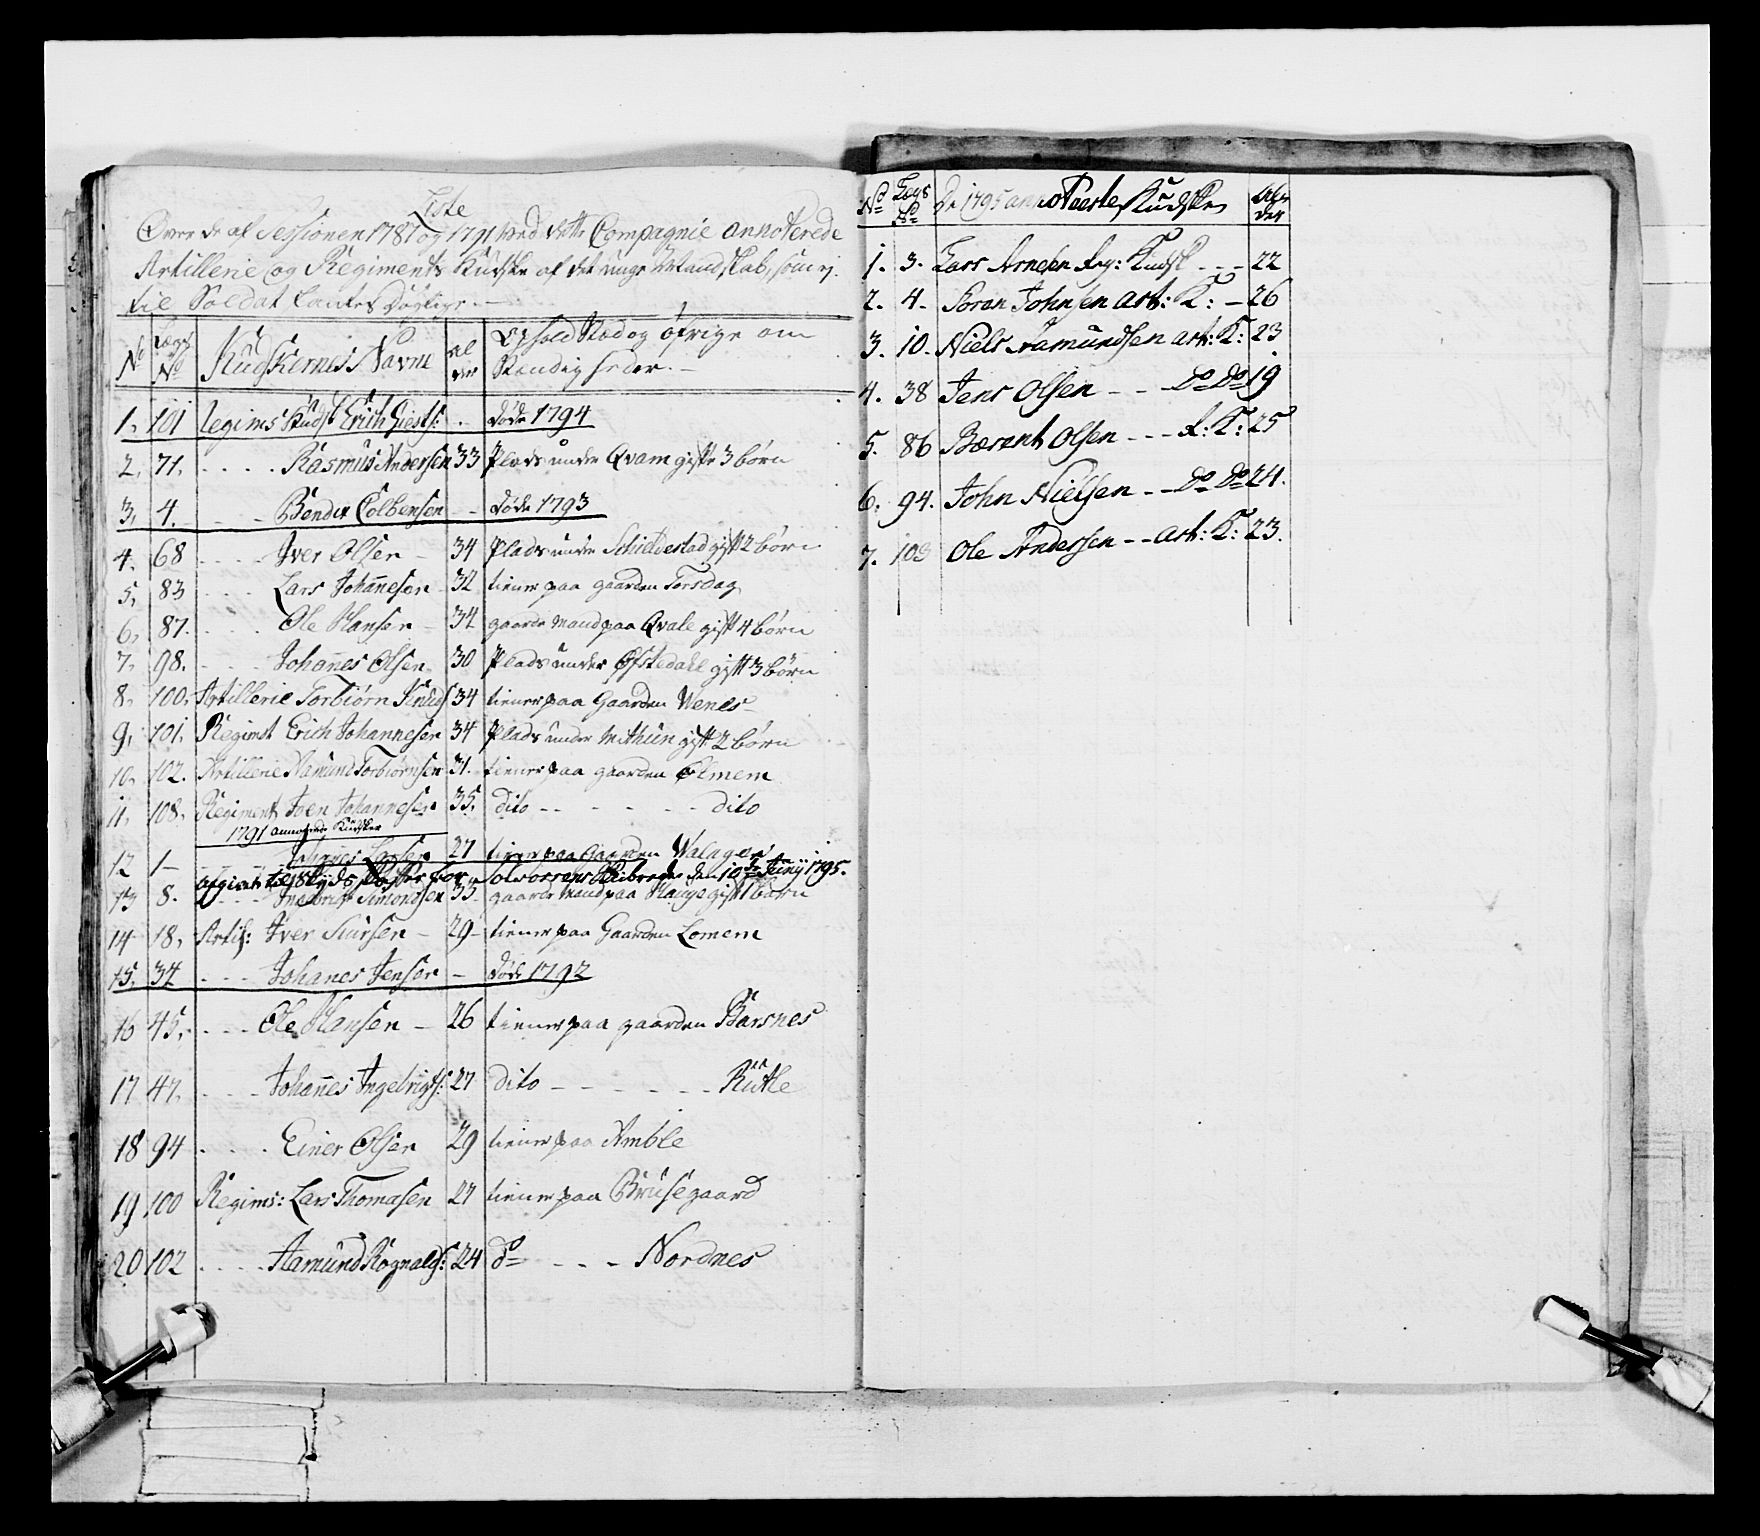 Liste
Over de af Sessionen 1787 og 1791 ved dette Compagnie annoterede
Artillerie og Regiments Kudske af det unge Mandskab, som ej
til Soldat Dögtige
No Lægs No Kudskernes Navne al der Ophold Stæd og öfrige om
Stændigheder.
1, 101 Regims Kudsk Erich Giests: - döde 1794
2, 71, Rasmus Andersen 33 Plads under Qvam gift 3 börn
3, 4. Colbensen - döde 1793
4. 68 Iver Olsen - 34 Plads under gift 2 börn
5, 83 Lars Johannesen 32 tiener paa gaarden Torsdag
6, 87. Ole Hansen - 34 gaarde Mand paa Qvale gift 4 börn
7, 98. Johannes Olsen 30 Plads under Ofstedahl gift 3 börn
8, 100, Artillerie Torbiörn 34 tiener paa Gaarden Wenes
9, 101, Regimt Erich Johannesen 34 Plads under Mithun gift 2 börn
10, 102. Artillerie Aamund Torbiörnsen 31. tiener paa gaarden Ølmem
11, 108, Regiment Joen Johannesen 35, dito - - - dito
1791 annoterede Kudsker
12 1- Johannes Larsen 27 tiener paa Gaarden
afgivet til Skyds for Solvorrens den 10de Junij 1795.
13 8. Ingebrigt Simondsen 33 gaarde Mand paa Hauge gift 1 barn
14 18, Artil: Iver Siursen - 29 - tiener paa Gaarden Lomem
15, 34 - - - Johanes Jensen - döde 1792
16 45, - - - Ole Hansen - 26 tiener paa gaarden Barsnes
17 47, - - - Johannes Ingebrigts: 27 dito - - - Rutle
18 94 - - - Einer Olsen 29 tiener paa Amble
19 100 Regims: Lars Thomasen 27 tiener paa Brusegaard
20 102 - - - Aamund Rognalds: 24 do - - - Nordnes
No Lægs No De 1795 annoteerte Kudske Al- der
1. 3. Lars Arnesen Reg: Kudsk - - - 22
2. 4. Soren Johnsen art: K: - 26
3. 10. Niels Aamundsen art: K: 23
4. 38 Jens Olsen - - Do Do 19
5. 86 Bærent Olsen - - - R: K: 25
6. 94. John Nielsen - - Do Do 24.
7. 103 Ole Andersen - - art: K: 23.